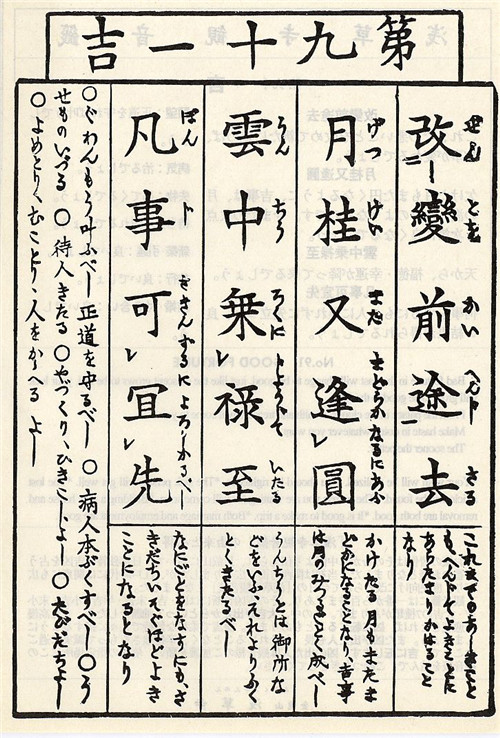 第九十一吉
改變前途去
これまでのあしきこと
も、へんじてよきことに
あらたまりかはること
なり
月桂又逢圓
げつ けい また まどかなるにあふ
かけたる月もまたま
どかになることなり、吉事
は月のみつるごとく成べし
雲中乗禄至
うん ちう ろくに いたる
うんちうとは御所な
どをいふ、それよりふく
とくきたるべし
凡事可宜先
ぼん じ さきんずるによろしかるべし
なにごとをなすにも、さ
きだちいそぐほどよき
ことになるとなり
○ぐわんもう叶ふべし 正道を守るべし ○病人本ぶくすべし ○う
せものいづる ○待人きたる ○やづくり、ひきこしよし ○たびだちよし
○よめとり、むことり、人をかゝへる よし